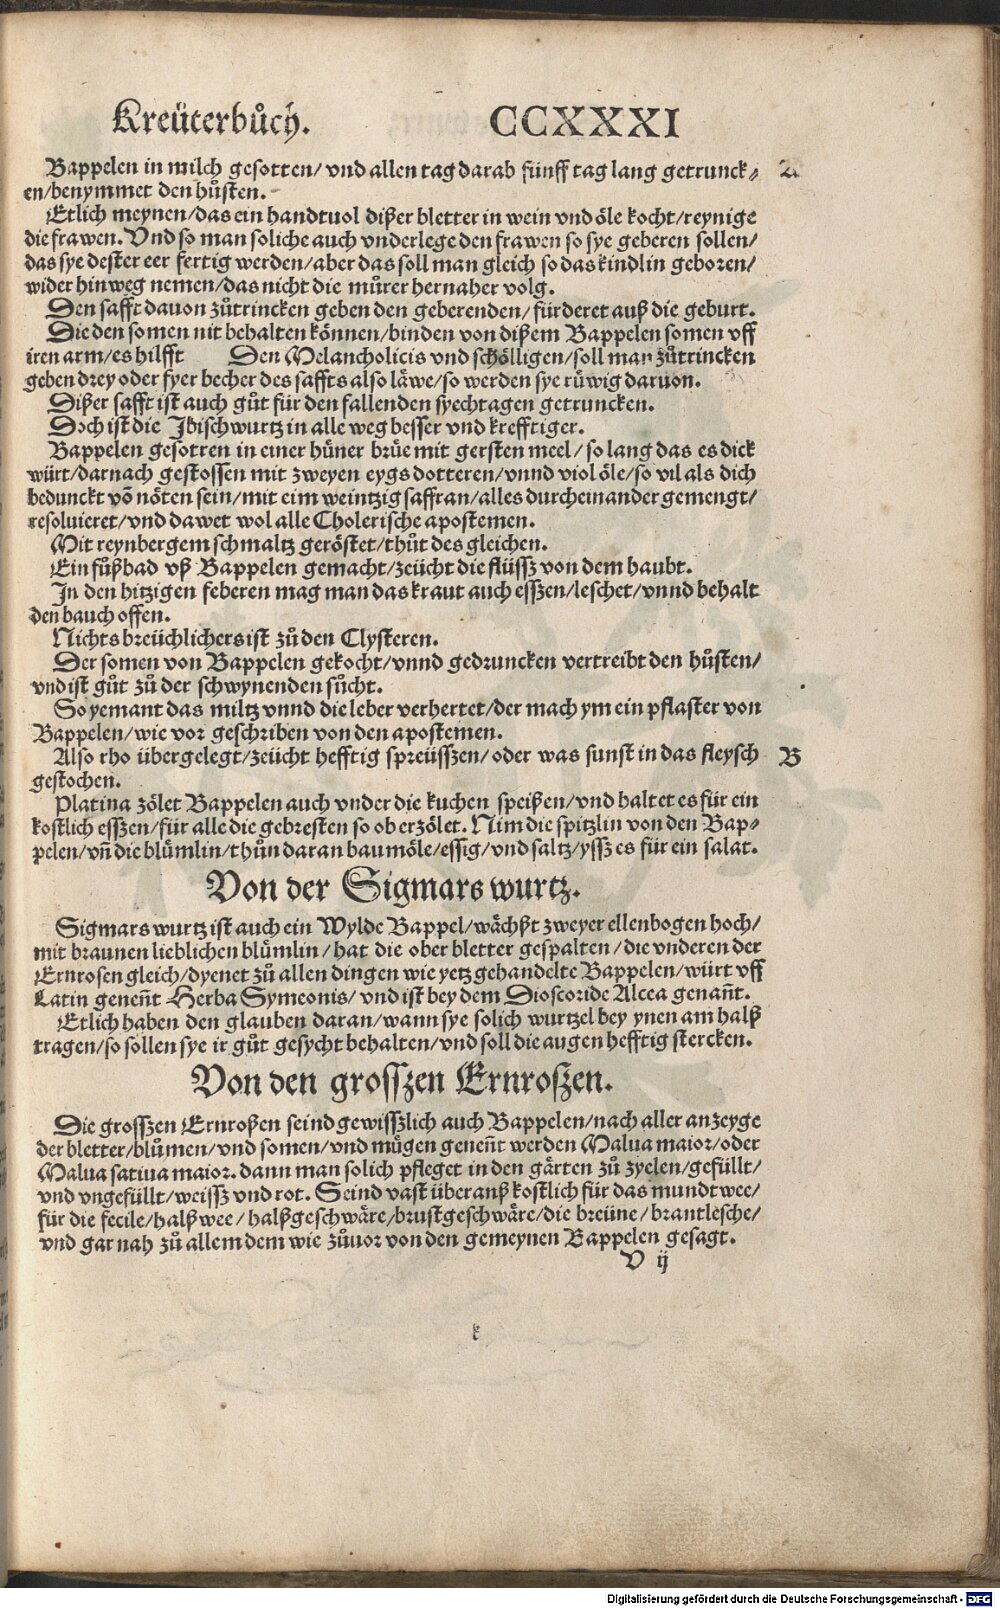 Kreüterbůch. CCXXXI
Bappelen in milch gesotten/ vnd allen tag darab fünff tag lang getrunck⸗ A
en/benymmet den hůsten.
Etlich meynen/das ein handtuol dißer bletter in wein vnd öle kocht/reynige
die frawen. Vnd so man soliche auch vnderlege den frawen so sye geberen sollen/
das sye dester eer fertig werden/aber das soll man gleich so das kindlin geboren/
wider hinweg nemen/das nicht die můrer hernaher volg.
Den safft dauon zůtrincken geben den geberenden/fürderet auß die geburt.
Die den somen nit behalten können/binden von dißem Bappelen somen vff
iren arm/es hilfft Den Melancholicis vnd schölligen/soll man zůtrincken
geben drey oder fyer becher des saffts also läwe/so werden sye rüwig daruon.
Dißer safft ist auch gůt für den fallenden syechtagen getruncken.
Doch ist die Ibisch wurtz in alle weg besser vnd krefftiger.
Bappelen gesotten in einer hüner brüe mit gersten meel/so lang das es dick
würt/darnach gestossen mit zweyen eygs dotteren/vnnd viol öle/so vil als dich
bedunckt vō nöten sein/mit eim weintzig saffran/alles durcheinander gemengt/
resoluieret/vnd dawet wol alle Cholerische apostemen.
Mit reynbergem schmaltz geröstet/thůt des gleichen.
Ein fůßbad vß Bappelen gemacht/zeücht die flüssz von dem haubt.
In den hitzigen feberen mag man das kraut auch esszen/leschet/vnnd behalt
den bauch offen.
Nichts breüchlichers ist zů den Clysteren.
Der somen von Bappelen gekocht/vnnd gedruncken vertreibt den hůsten/
vnd ist gůt zů der schwynenden sůcht.
So yemant das miltz vnnd die leber verhertet/der mach ym ein pflaster von
Bappelen/wie vor geschriben von den apostemen.
Also rho übergelegt/zeücht hefftig spreüsszen/oder was sunst in das fleysch B
gestochen.
Platina zölet Bappelen auch vnder die kuchen speißen/vnd haltet es für ein
kostlich esszen/für alle die gebresten so ob erzölet. Nim die spitzlin von den Bap⸗
pelen/vñ die blümlin/thůn daran baumöle/essig/vnd saltz/yssz es für ein salat.
Von der Sigmars wurtz.
Sigmars wurtz ist auch ein Wylde Bappel/wächßt zweyer ellenbogen hoch/
mit braunen lieblichen blümlin/hat die ober bletter gespalten/die vnderen der
Ernrosen gleich/dyenet zů allen dingen wie yetz gehandelte Bappelen/würt vff
Latin geneñt Herba Symeonis/vnd ist bey dem Dioscoride Alcea genañt.
Etlich haben den glauben daran/wann sye solich wurtzel bey ynen am halß
tragen/so sollen sye ir gůt gesycht behalten/vnd soll die augen hefftig stercken.
Von den grosszen Ernroßzen.
Die grosszen Ernroßen seind gewisszlich auch Bappelen/nach aller anzeyge
der bletter/blůmen/vnd somen/vnd mügen geneñt werden Malua maior/oder
Malua satiua maior. dann man solich pfleget in den gärten zů zyelen/gefüllt/
vnd vngefüllt/weissz vnd rot. Seind vast überauß kostlich für das mundt wee/
für die fecile/halß wee/halßgeschwäre/brustgeschwäre/die breüne/brantlesche/
vnd gar nah zů allem dem wie zůuor von den gemeynen Bappelen gesagt.
V ij
k
Digitalisierung gefördert durch die Deutsche Forschungsgemeinschaft - DFG